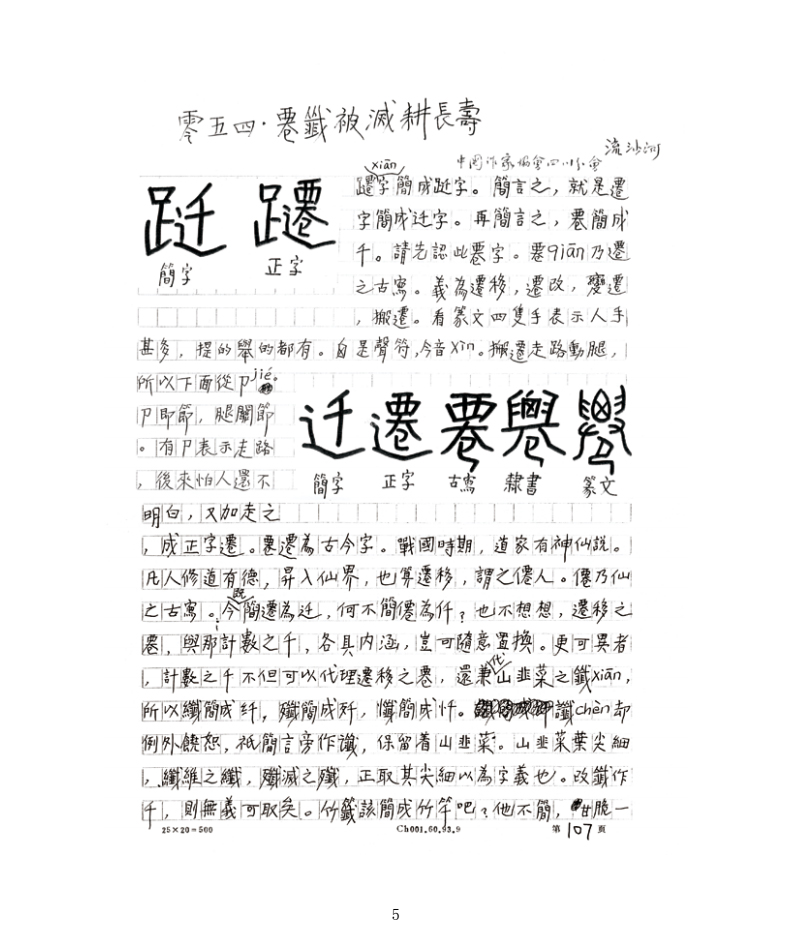 零五四·䙴韱被滅耕長壽
中國作家協會四川分會 流沙河
xiān
躚字簡成跹字。簡言之，就是遷
跹 躚
字簡成迁字。再簡言之，䙴簡成
千。請先認此䙴字。䙴qiān乃遷
簡字 正字
之古寫。義為遷移，遷改，變遷
，搬遷。看篆文四隻手表示人手
甚多，提的舉的都有。囟是聲符，今音xìn。搬遷走路動腿，
所以下面從卪jié。
卪即節，腿關節
迁 遷 䙴
。有卪表示走路
，後來怕人還不
簡字 正字 古寫 隸書 篆文
明白，又加走之
，成正字遷。䙴遷為古今字。戰國時期，道家有神仙說。
凡人修道有德，昇入仙界，也算遷移，謂之僊人。僊乃仙
之古寫。今既簡遷為迁，何不簡僊為仟？也不想想，遷移之
䙴，與那計數之千，各具內涵，豈可隨意置換。更可異者
，計數之千不但可以代理遷移之䙴，還兼代山韭菜之韱xiān，
所以纖簡成纤，殲簡成歼，懺簡成忏。讖chèn却
例外饒恕，祇簡言旁作谶，保留着山韭菜。山韭菜葉尖細
，纖維之纖，殲滅之殲，正取其尖細以為字義也。改韱作
千，則無義可取矣。竹籤該簡成竹竿吧？他不簡，甘脆一
25×20=500 Ch001.60.93.9 第107頁
5